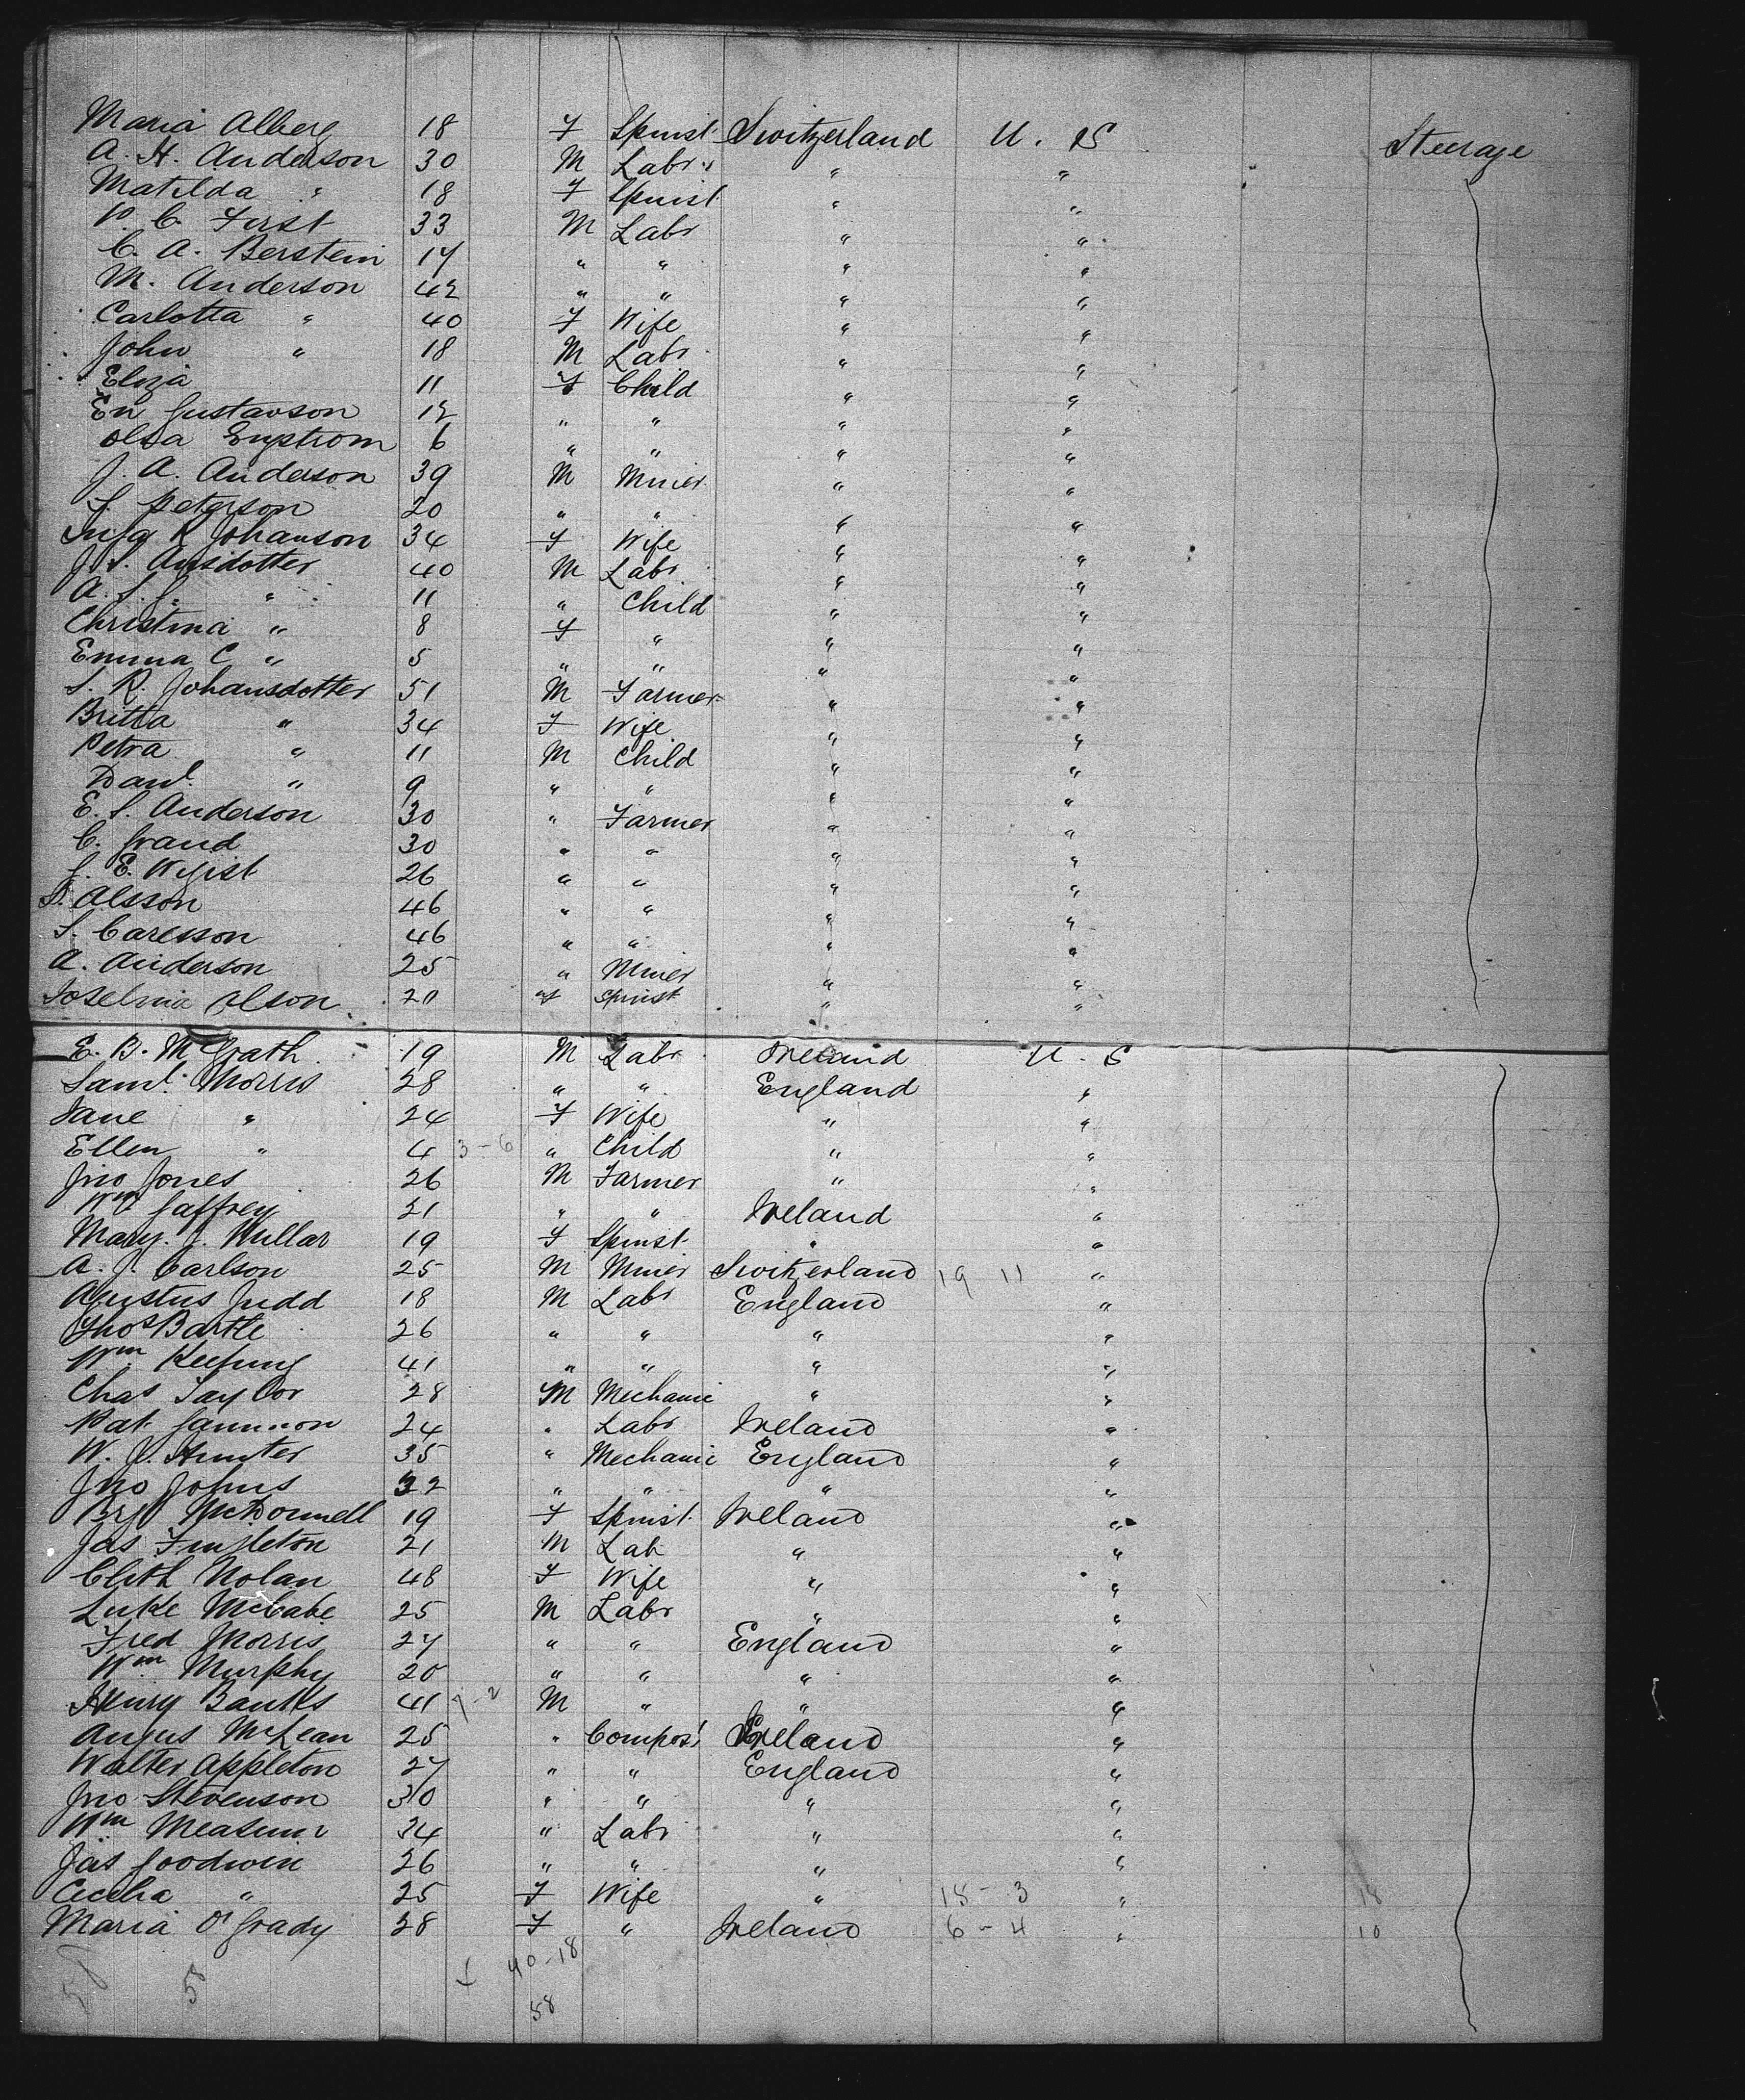 Maria Alberg 18 F Spinst. Switzerland U. S Steerage
A. H. Anderson 30 M Labr " "
Matilda " 18 F Spinst " "
P. C. First 33 M Labr " "
C. A. Berstein 17 " " " "
M. Anderson 42 " " " "
Carlotta " 40 F Wife " "
John " 18 M Labr " "
Eliza 11 F Child " "
En Gustavson 12 " " " "
Olsa Engstrom 6 " " " "
J. A. Anderson 39 M Miner " "
S. Peterson 20 " " " "
Inga K Johanson 34 F Wife " "
J. S. Ansdotter 40 M Labr " "
A. S. J. " 11 " Child " "
Christina " 8 F " " "
Emma C " 5 " " " "
S. R. Johansdotter 51 M Farmer " "
Britta " 34 F Wife " "
Petra " 11 M Child " "
Danl. " 9 " " " "
E. S. Anderson 30 " Farmer " "
C. Grand 30 " " " "
J. E. 26 " " " "
S. Alsson 46 " " " "
S. Caresson 46 " " " "
A. Anderson 25 " Miner " "
Olson 20 F Spinst " "
E. B. McGrath 19 M Labr Ireland U. S
Saml. Morris 28 " " England "
Jane " 24 F Wife " "
Ellen " 4 3-6 " Child " "
Jno Jones 26 M Farmer " "
Wm Gaffney 21 " " Ireland "
Mary. J. Mullar 19 F Spinst. " "
A. J. Carlson 25 M Miner Switzerland 19 11 "
Agustus Judd 18 M Labr England "
Thos Bartle 26 " " " "
Wm Keeping 41 " " " "
Chas Taylor 28 M Mechanic " "
Pat Gannnon 24 " Labr Ireland "
W. J. Hunter 35 " Mechanic England "
Jno Johns 32 " " " "
Bryt McDonnell 19 F Spinst. Ireland "
Jas Fingleton 21 M Lab " "
Elith Nolan 48 F Wife " "
Luke McCabe 25 M Labr " "
Fred Morris 27 " " England "
Wm Murphy 20 " " " "
Henry Banks 41 7-2 M " " "
Angus McLean 25 " Compos. Ireland "
Walter Appleton 27 " " England "
Jno Stevenson 30 " " " "
Wm Measum 34 " Labr " "
Jas Goodwin 26 " " " "
Cecelia " 25 F Wife " 15-3 " 18
Maria O'Grady 28 F " Ireland 6-4 " 10
58 5 40-18
58